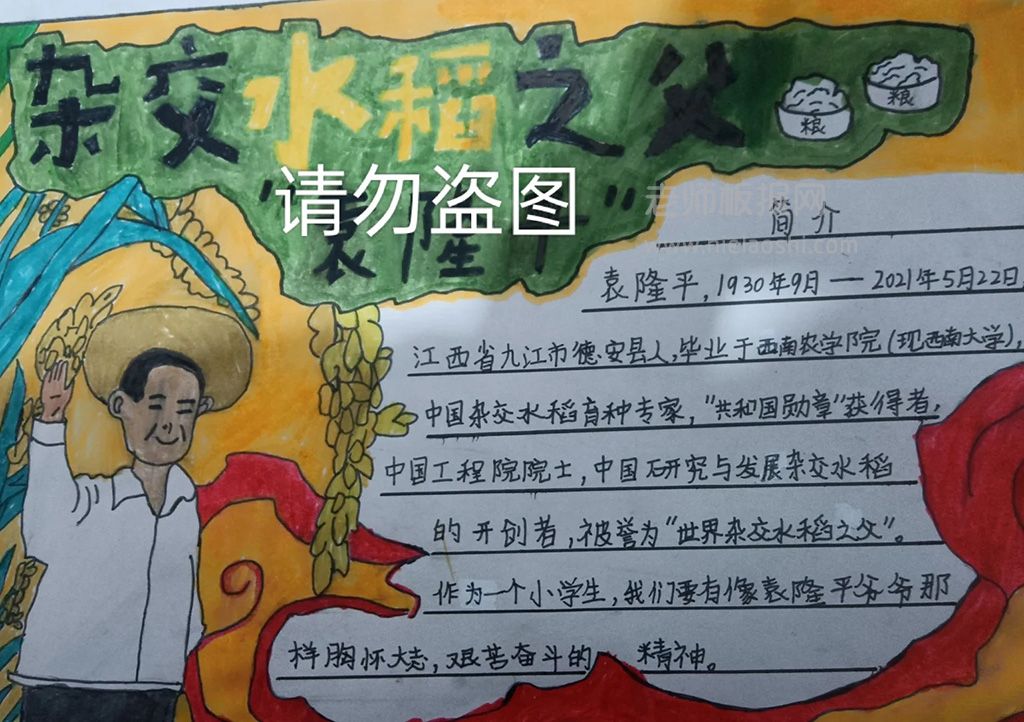 杂交水稻之父
粮
粮
请勿盗图
"袁隆平"
老师板报网
简介
袁隆平,1930年9月——2021年5月22日
江西省九江市德安县人,毕业于西南农学院(现西南大学),
中国杂交水稻育种专家,"共和国勋章"获得者,
中国工程院院士,中国研究与发展杂交水稻
的开创者,被誉为"世界杂交水稻之父"。
作为一个小学生,我们要有像袁隆平爷爷那
样胸怀大志,艰苦奋斗的 精神。